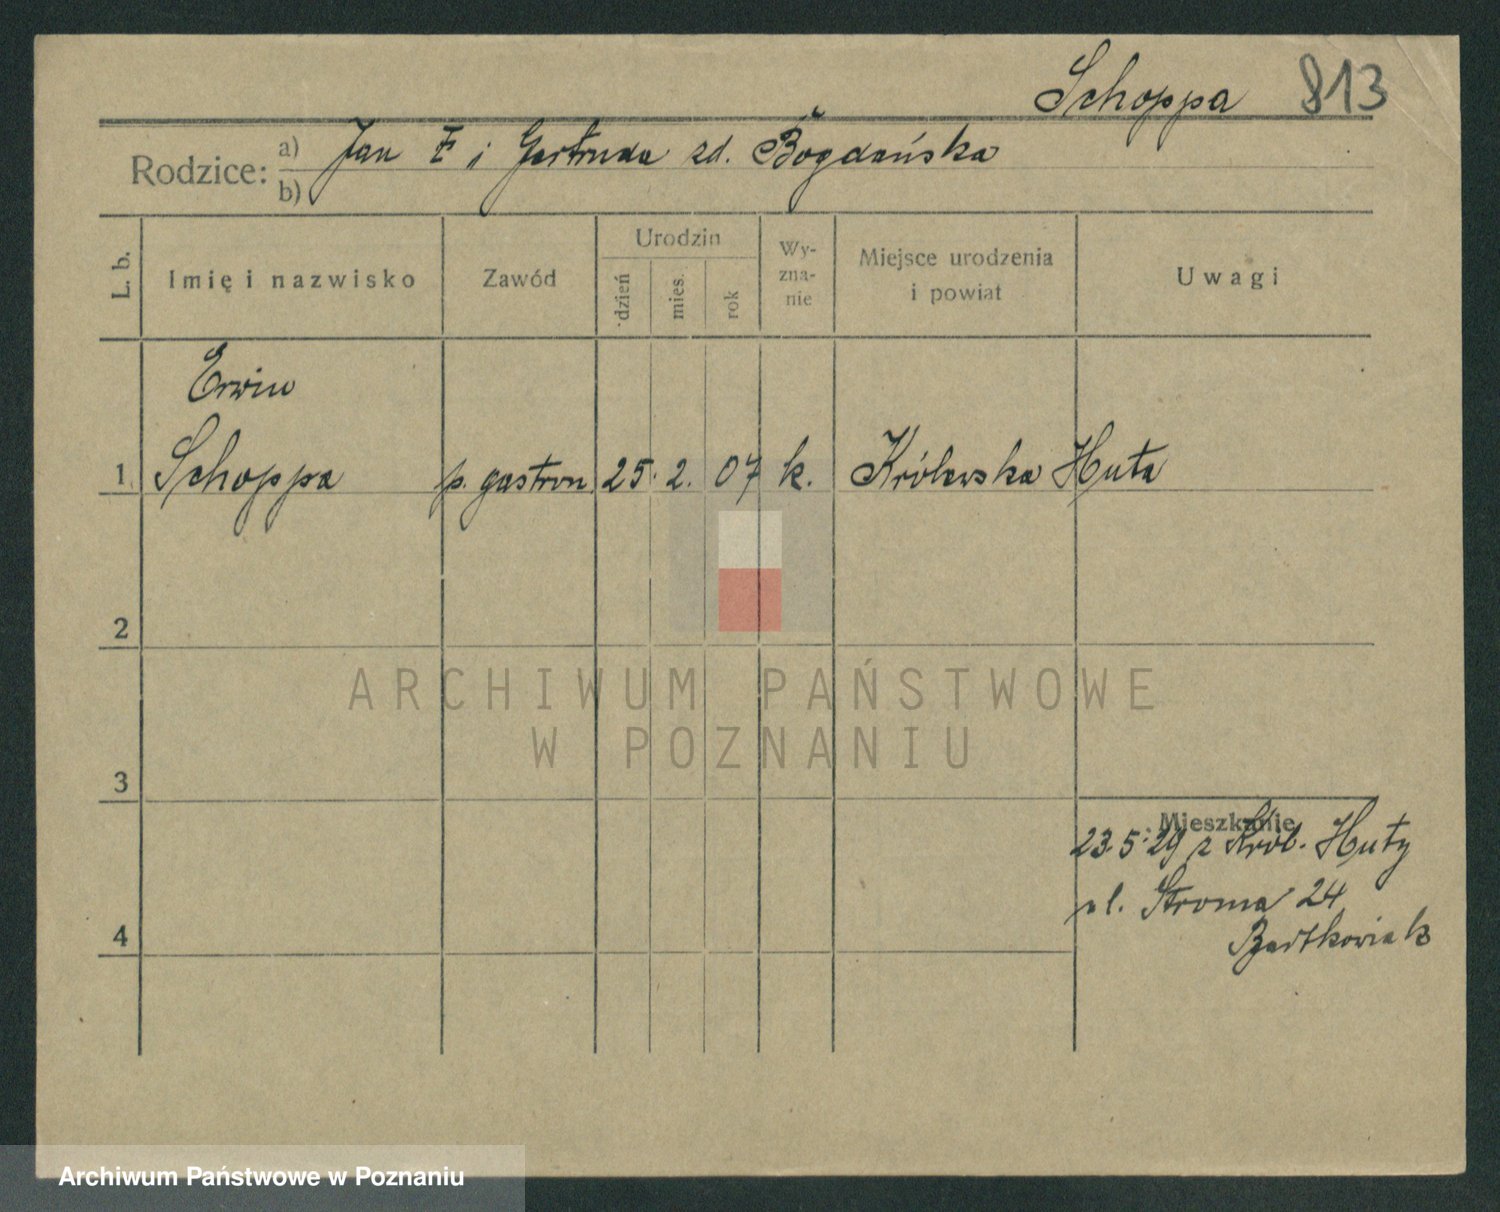 Schoppa 813
Rodzice: a) Jan i Gertruda zd. Bogdańska
b)
L. b. Imię i nazwisko Zawód Urodzin Wy- Miejsce urodzenia Uwagi
dzień mies. rok zna- i powiat
nie
Erwin
1 Schoppa p. gastron 25. 2. 07 k. Królewska Huta
2
ARCHIWUM PAŃSTWOWE
W POZNANIU
3
Mieszkanie
23.5.29 z Król. Huty
ul. Stroma 24
4 Bartkowiak
Archiwum Państwowe w Poznaniu